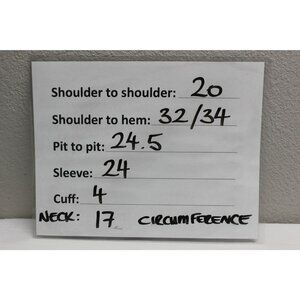 Shoulder to shoulder: 20
Shoulder to hem: 32/34
Pit to pit: 24.5
Sleeve: 24
Cuff: 4
NECK: 17 CIRCUMFERENCE